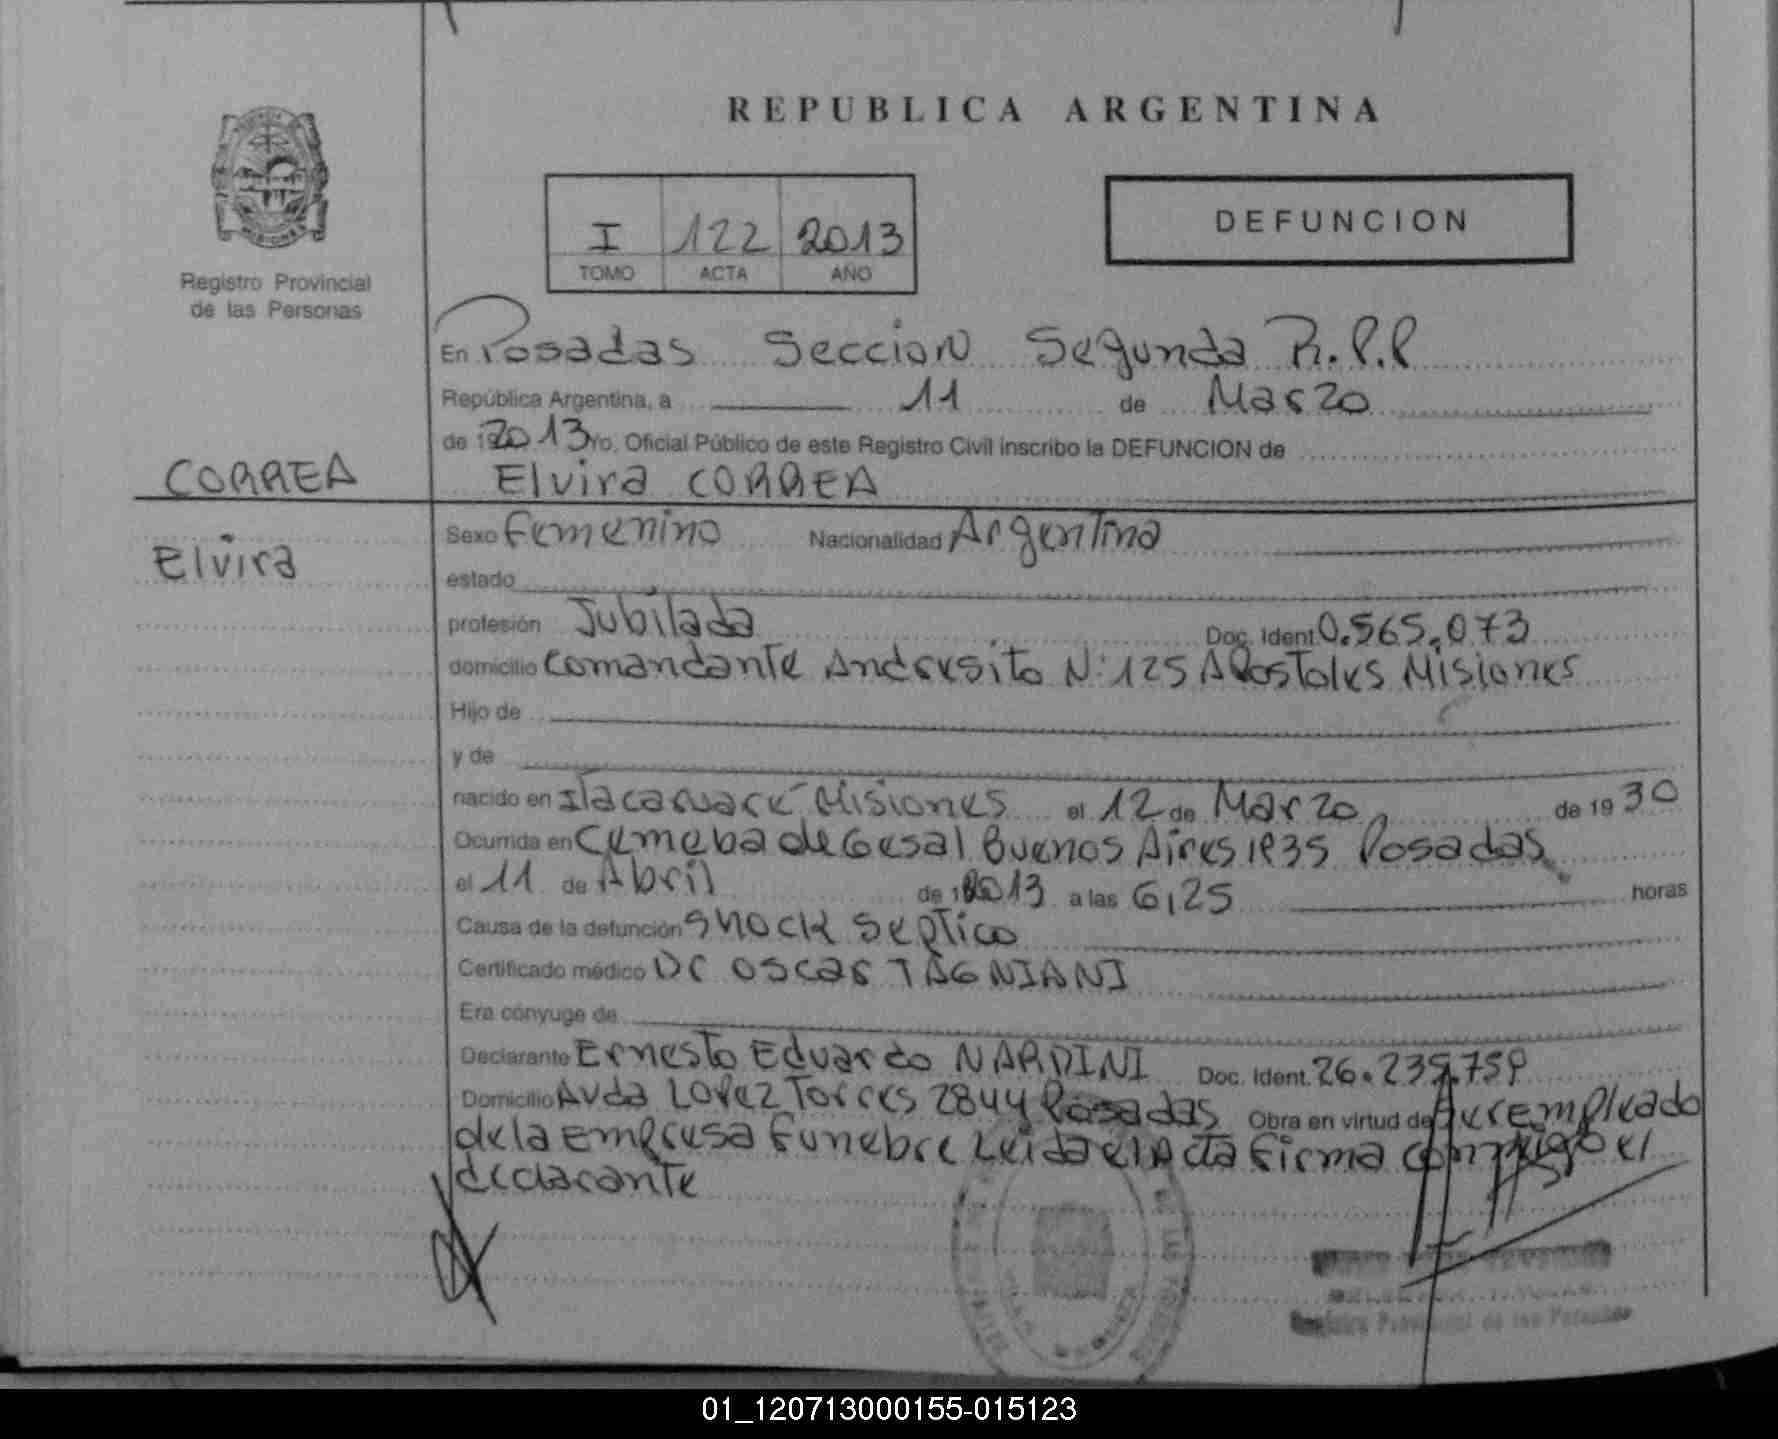 REPUBLICA ARGENTINA
I 122 2013
TOMO ACTA AÑO
DEFUNCION
Registro Provincial
de las Personas
En Posadas Seccion Segunda R.P.P
República Argentina, a 11 de Marzo
de 2013 Yo, Oficial Público de este Registro Civil inscribo la DEFUNCION de
CORREA
Elvira CORREA
Elvira
Sexo Femenino Nacionalidad Argentina
estado
profesión Jubilada Doc. Ident 0.565.073
domicilio Comandante Andresito N: 125 APostoles Misiones
Hijo de
y de
nacido en Itacaruaré Misiones el 12 de Marzo de 1930
Ocurrida en Buenos Aires Posadas
el 11 de Abril de 2013 a las 6,25 horas
Causa de la defunción Shock Septico
Certificado médico Dr Oscar TAGNIANI
Era cónyuge de
Declarante Ernesto Eduardo NARDINI Doc. Ident.
Domicilio Avda LoPez Torres 2844 Posadas Obra en virtud de ser emPleado
de la emPresa Funebre Leida el Acta Firma conmigo el
declarante
Registro Provincial de las Personas
01_120713000155-015123